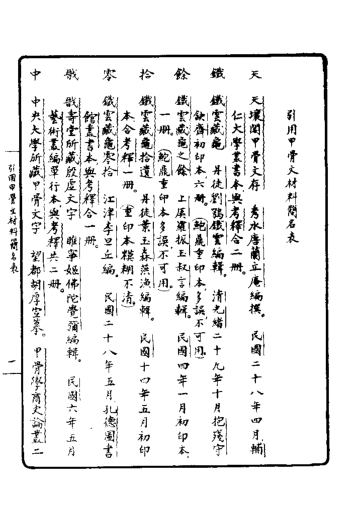 引用甲骨文材料簡名表
天　天壤閣甲骨文存　秀水唐蘭立庵編撰。民國二十八年四月輔
仁大學叢書本與考釋合二册。
鐵　鐵雲藏龜　丹徒劉鶚鐵雲編輯。清光緒二十九年十月抱殘守
缺齋初印本六册。（鮑鼎重印本多誤不可用）
餘　鐵雲藏龜之餘　上虞羅振玉叔言編輯。民國四年一月初印本
一册。（鮑鼎重印本多誤不可用）
拾　鐵雲藏龜拾遺　丹徒葉玉森葓漁編輯。民國十四年五月初印
本合考釋一册。（重印本模糊不清）
零　鐵雲藏龜零拾　江津李旦丘編。民國二十八年五月孔德圖書
館叢書本與考釋合一册。
戩　戩壽堂所藏殷虛文字　睢寧姬佛陀覺彌編輯。民國六年五月
藝術叢編單行本與考釋共二册。
中　中央大學所藏甲骨文字　望都胡厚宣摹。甲骨學商史論叢二
引用甲骨文材料簡名表
一